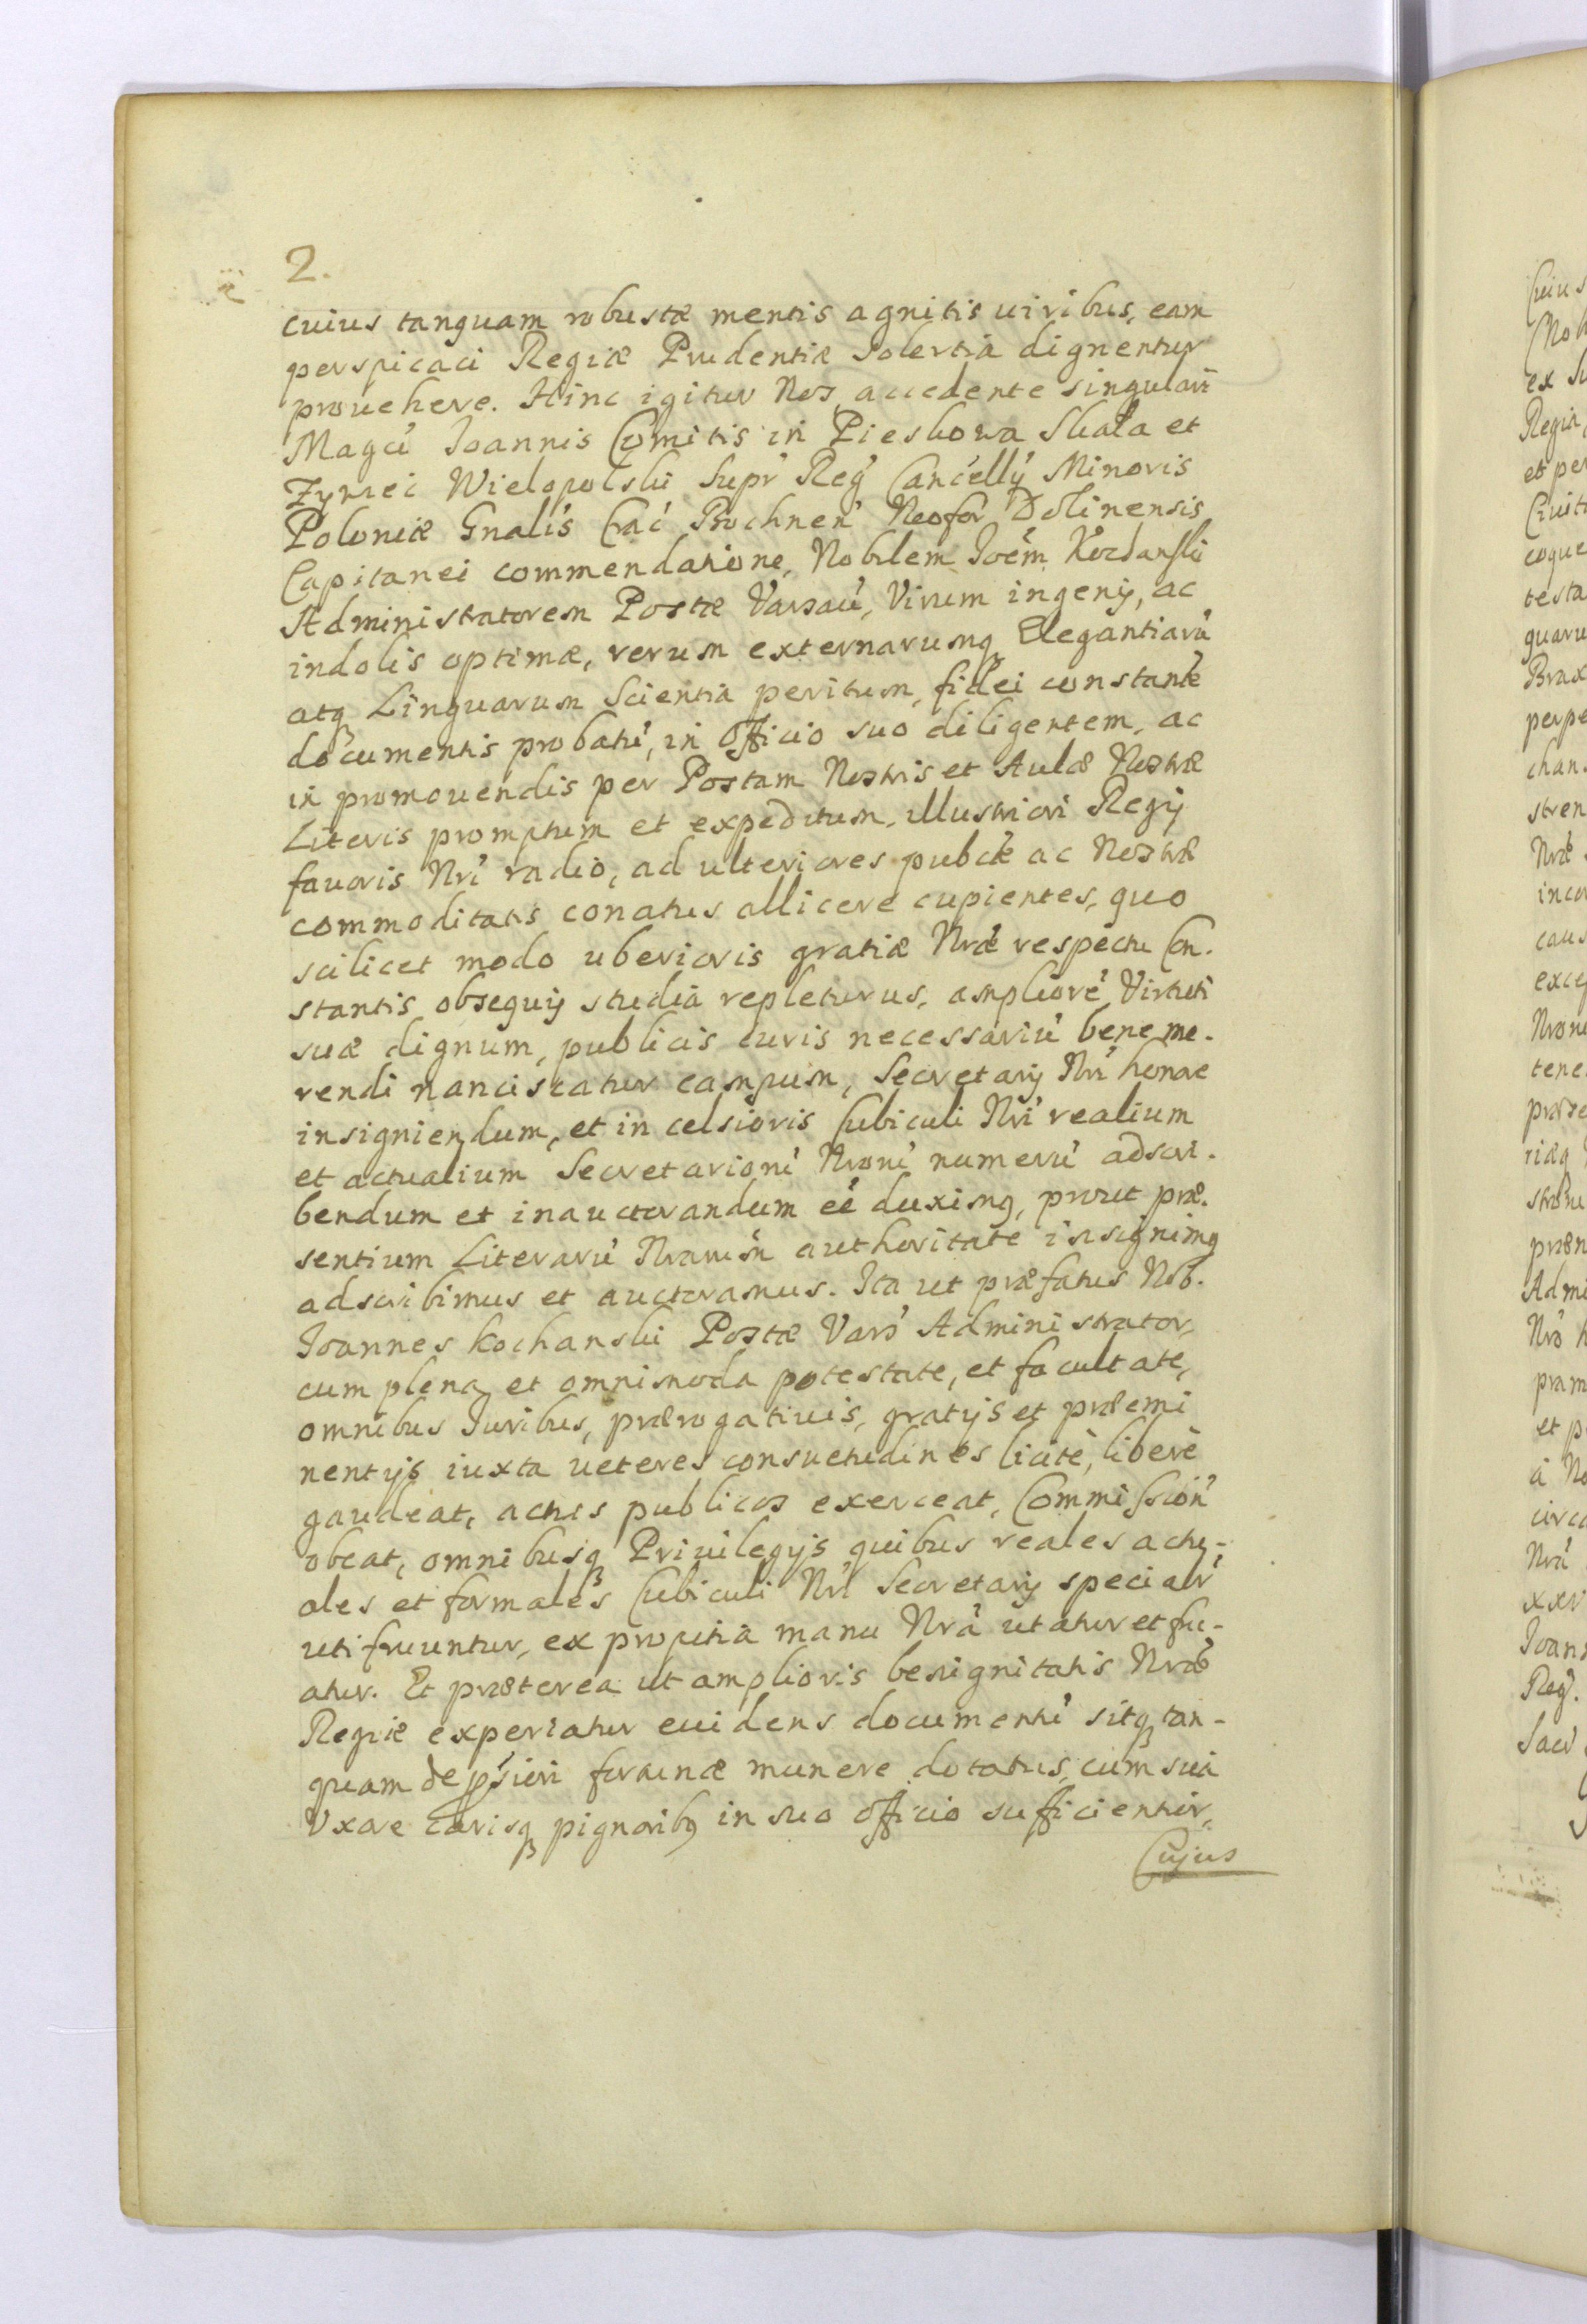 2.
cuius tanquam robustæ mentis agnitis uiribus, eam
perspicaci Regiæ Prudentiæ Solertiâ dignentur
prouehere. Hinc igitur Nos, accedente singulari
Magci Joannis Comitis in Pieskowa Skała et
Zywiec Wielopolski Supr Reg Cancellÿ Minoris
Poloniæ Gnalis Crac Bochnen Neofor Dolinensis
Capitanei commendatione, Nobilem Joem
Administratorem Postæ Varsau, Virum ingenij, ac
indolis optimæ, rerum externarumq Elegantiarū
atq Linguarum Scientiâ peritum, fidei constante
documentis probatū, in officio suo diligentem, ac
in promouendis per Postam Nostris et Aulæ Nostræ
Literis promptum et expeditum, illustriori Regij
fauoris Nri radio, ad ulteriores pubcæ ac Nostræ
commoditatis conatus allicere cupientes, quo
scilicet modo uberioris gratiæ Nræ respectu Con-
stantis obsequij studia repleturus, ampliore Virtuti
suæ dignum, publicis curis necessariū bene me-
rendi nanciscatur campum, Secretarij Nri honore
insigniendum, et in celsioris Cubiculi Nri realium
et actualium Secretarioru Nroru numerū adscri-
bendum et inauctorandum eē duximq, prout præ-
sentium Literarū Nrarum authoritate insignimq
adscribimus et auctoramus. Ita ut præfatus Nob.
Joannes Kochanski Postæ Vars Administrator,
cum plena et omnimoda potestate, et facultate,
omnibus Juribus, prærogatiuis, gratijs et præemi
nentijs iuxta ueteres consuetudines licitè, liberè
gaudeat, actus publicos exerceat, Commission
obeat, omnibusq Priuilegijs quibus reales actu-
ales et formales Cubiculi Nri Secretarij specialr
uti fruuntur, ex propitia manu Nra utatur et fru-
atur. Et præterea ut amplioris benignitatis Nræ
Regiæ experiatur euidens documentū sitq tan-
quam de fortunæ munere dotatus, cum sua
Vxore carisq pignoribq in suo officio sufficienter,
Cujus